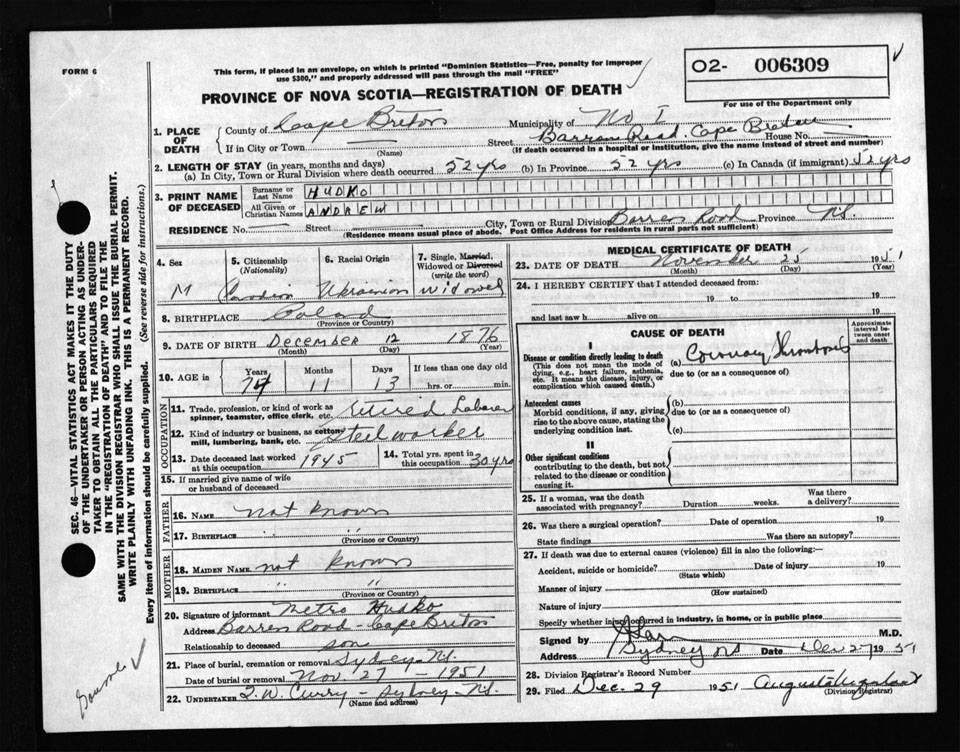 FORM 6
This form, if placed in an envelope, on which is printed "Dominion Statistics—Free, penalty for improper
use $300," and properly addressed will pass through the mail "FREE"
O2- 006309
For use of the Department only
PROVINCE OF NOVA SCOTIA—REGISTRATION OF DEATH
SEC. 46—VITAL STATISTICS ACT MAKES IT THE DUTY
OF THE UNDERTAKER OR PERSON ACTING AS UNDER-
TAKER TO OBTAIN ALL THE PARTICULARS REQUIRED
IN THE "REGISTRATION OF DEATH" AND TO FILE THE
SAME WITH THE DIVISION REGISTRAR WHO SHALL ISSUE THE BURIAL PERMIT.
WRITE PLAINLY WITH UNFADING INK. THIS IS A PERMANENT RECORD.
Every item of information should be carefully supplied. (See reverse side for instructions.)
1. PLACE OF DEATH
County of Cape Breton Municipality of No I
If in City or Town — (Name) Street Barren Road. Cape Breton House No.
(If death occurred in a hospital or institution, give the name instead of street and number)
2. LENGTH OF STAY (in years, months and days)
(a) In City, Town or Rural Division where death occurred 52 yrs (b) In Province 52 yrs (c) In Canada (if immigrant) 52 yrs
3. PRINT NAME OF DECEASED
Surname or Last Name HUDKO
All Given or Christian Names ANDREW
RESIDENCE No. — Street City, Town or Rural Division Barren Road Province N.S.
(Residence means usual place of abode. Post Office Address for residents in rural parts not sufficient)
4. Sex M
5. Citizenship (Nationality) Canadian
6. Racial Origin Ukrainian
7. Single, Married, Widowed or Divorced (write the word) Widowed
8. BIRTHPLACE Poland
(Province or Country)
9. DATE OF BIRTH December 12 1876
(Month) (Day) (Year)
10. AGE in Years 74 Months 11 Days 13 If less than one day hrs. or min.
OCCUPATION
11. Trade, profession, or kind of work as spinner, teamster, office clerk, etc. Retired Laborer
12. Kind of industry or business, as cotton mill, lumbering, bank, etc. Steelworker
13. Date deceased last worked at this occupation 1945
14. Total yrs. spent in this occupation 30 yrs
15. If married give name of wife or husband of deceased
FATHER
16. NAME not known
17. BIRTHPLACE " "
(Province or Country)
MOTHER
18. MAIDEN NAME not known
19. BIRTHPLACE " "
(Province or Country)
20. Signature of informant Metro Hudko
Address Barren Road - Cape Breton
Relationship to deceased son
21. Place of burial, cremation or removal Sydney N.S.
Date of burial or removal Nov 27 - 1951
22. UNDERTAKER T. W. Curry - Sydney N.S.
(Name and address)
MEDICAL CERTIFICATE OF DEATH
23. DATE OF DEATH November 25 1951
(Month) (Day) (Year)
24. I HEREBY CERTIFY that I attended deceased from:
19 to 19
and last saw h alive on 19
CAUSE OF DEATH
Approximate interval between onset and death
I
Disease or condition directly leading to death
(This does not mean the mode of dying, e.g., heart failure, asthenia, etc. It means the disease, injury, or complication which caused death.)
(a) Coronary Thrombosis
due to (or as a consequence of)
Antecedent causes
Morbid conditions, if any, giving rise to the above cause, stating the underlying condition last.
(b)
due to (or as a consequence of)
(c)
II
Other significant conditions
contributing to the death, but not related to the disease or condition causing it.
25. If a woman, was the death associated with pregnancy? Duration weeks. Was there a delivery?
26. Was there a surgical operation? Date of operation 19
State findings Was there an autopsy?
27. If death was due to external causes (violence) fill in also the following:—
Accident, suicide or homicide? Date of injury 19
(State which)
Manner of injury
(How sustained)
Nature of injury
Specify whether injury occurred in industry, in home, or in public place
Signed by M.D.
Address Sydney NS Date Dec 27 1951
28. Division Registrar's Record Number
29. Filed Dec. 29 1951 Augusta
(Division Registrar)